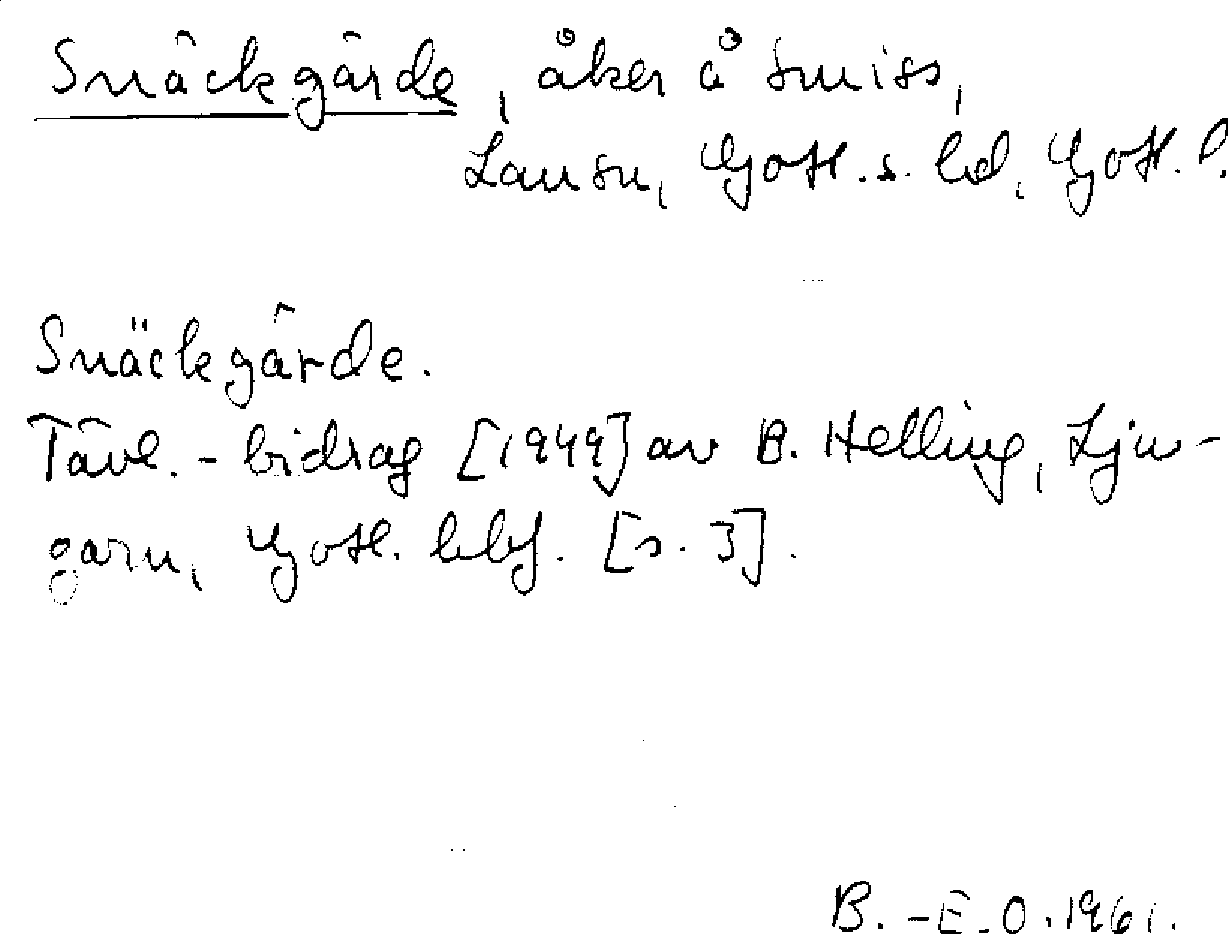 Snäckgärde, åker å Smiss,
Lausn, Gotl. s. hd, Gotl. l.
Snäckgärde.
Tävl. - bidrag [1949] av B. Helling, Lju-
garn, Gotl. hbf. [s. 3].
B. -E. O. 1961.